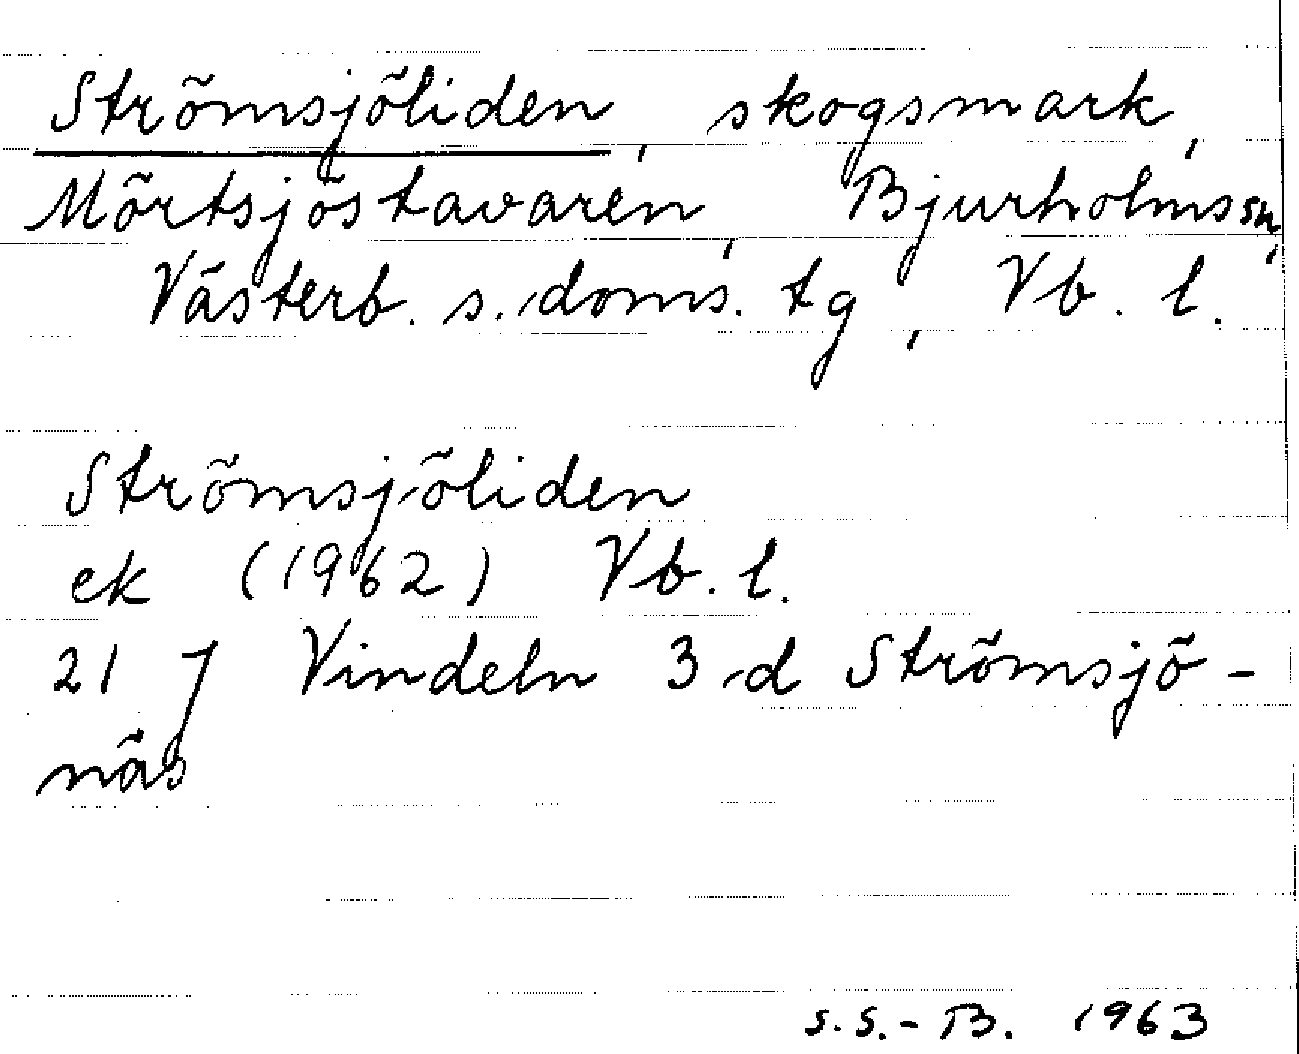 Strömsjöliden, skogsmark,
Mörtsjöstavaren, Bjurholms sn,
Västerb. s. doms. tg, Vb. l.
Strömsjöliden
ek (1962) Vb. l.
21 J Vindeln 3 d Strömsjö-
näs
S.S.-B. 1963